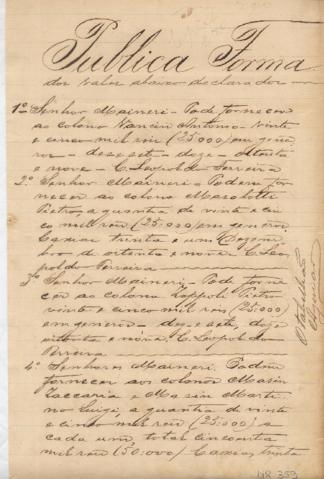 Publica Forma
dos vales abaixo declarados
1º Senhor Maineri - Pode fornecer
ao colono Vanein Antonio - vinte
e cinco mil reis (25:000) em gene
ros - dezesete - doze - oitenta
e nove - C. Leopoldo Ferreira
2º Senhor Maineri - Podem for
necer ao colono
Pietro, a quantia de vinte e cin
co mil reis (25:000) em generos.
Caxias trinta e um Dezem
bro de oitenta e nove. C. Leo
poldo Ferreira
3º Senhor Maineri. Pode forne
cer ao colono Zoppoli Pietro
vinte e cinco mil reis (25:000)
em generos - dezesete, doze
oitenta e nove. C. Leopoldo
Ferreira
4º Senhores Maineri. Podem
fornecer aos colonos Masin
Zaccaria e Masin Marti
no Luigi, a quantia de vinte
e cinco mil reis (25:000) a
cada um, total cincoenta
mil reis (50:000) Caxias trinta
O tabellião
NR 359